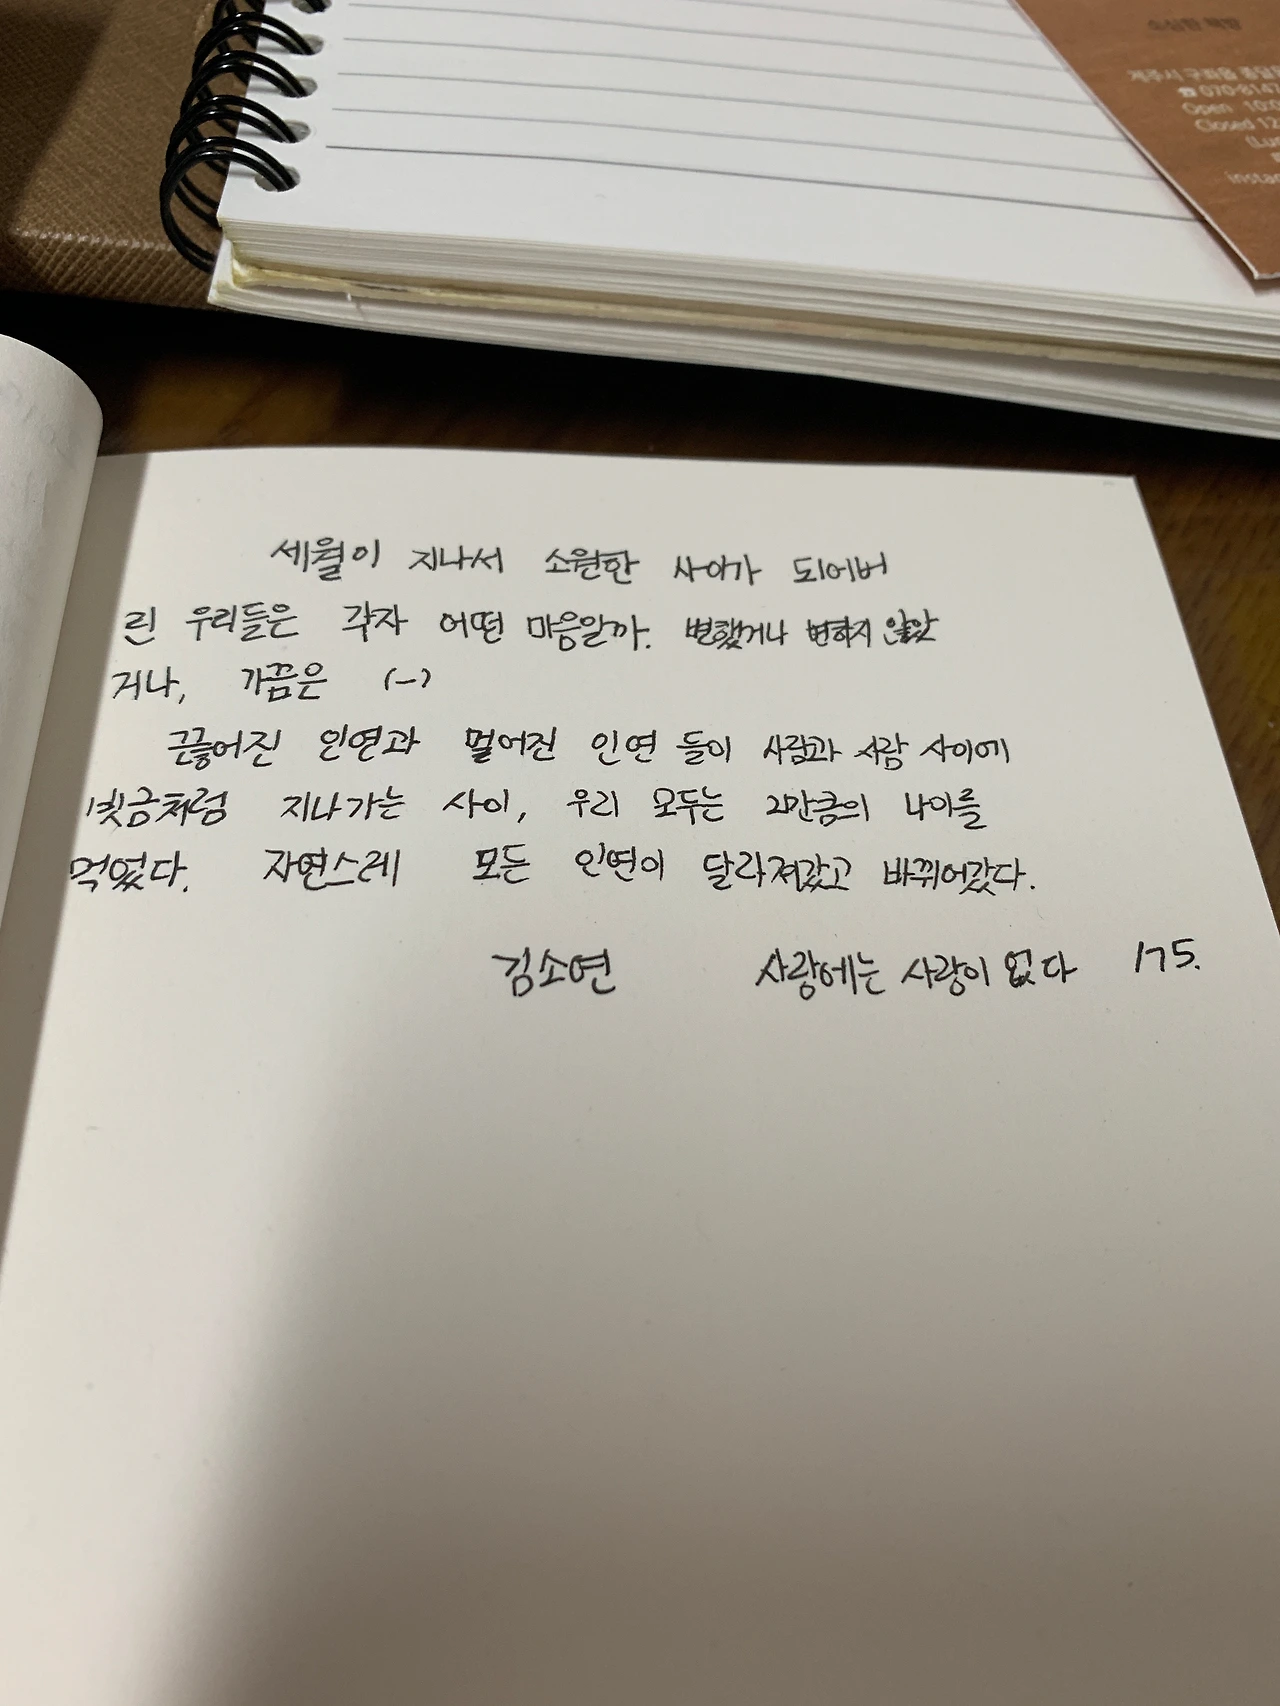 소심한 책방
제주시 구좌읍 종달
☎ 070-8147
Open 10:0
Closed 12
(Lu
instag
세월이 지나서 소원한 사이가 되어버
린 우리들은 각자 어떤 마음일까. 변했거나 변하지 않았
거나, 가끔은 (-)
끊어진 인연과 멀어진 인연 들이 사람과 사람 사이에
빗금처럼 지나가는 사이, 우리 모두는 그만큼의 나이를
먹었다. 자연스레 모든 인연이 달라져갔고 바뀌어갔다.
김소연 사랑에는 사랑이 없다 175.